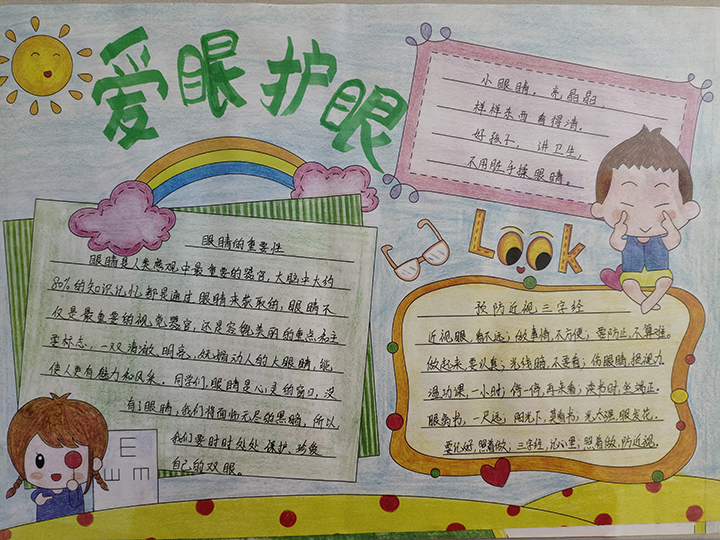 爱眼护眼
小眼睛，亮晶晶，
样样东西看得清，
好孩子，讲卫生，
不用脏手揉眼睛。
Look
眼睛的重要性
眼睛是人类感观中最重要的器官，大脑中大约
80%的知识记忆都是通过眼睛来获取的，眼睛不
仅是最重要的视觉器官，还是容貌美丽的重点和主
要标志，一双清澈、明亮、妩媚动人的大眼睛，能
使人更有魅力和风采。同学们，眼睛是心灵的窗口，没
有了眼睛，我们将面临无尽的黑暗，所以
我们要时时处处保护、珍爱
自己的双眼。
预防近视三字经
近视眼，看不远；做事情，不方便；要防止，不算难。
做起来，要认真；光线暗，不要看；伤眼睛，损视力
温功课，一小时；停一停，再来看；读书时，坐端正。
眼离书，一尺远；阳光下，莫看书；光太强，眼发花。
要记好，照着做；三字经，记心里；照着做，防近视。
E